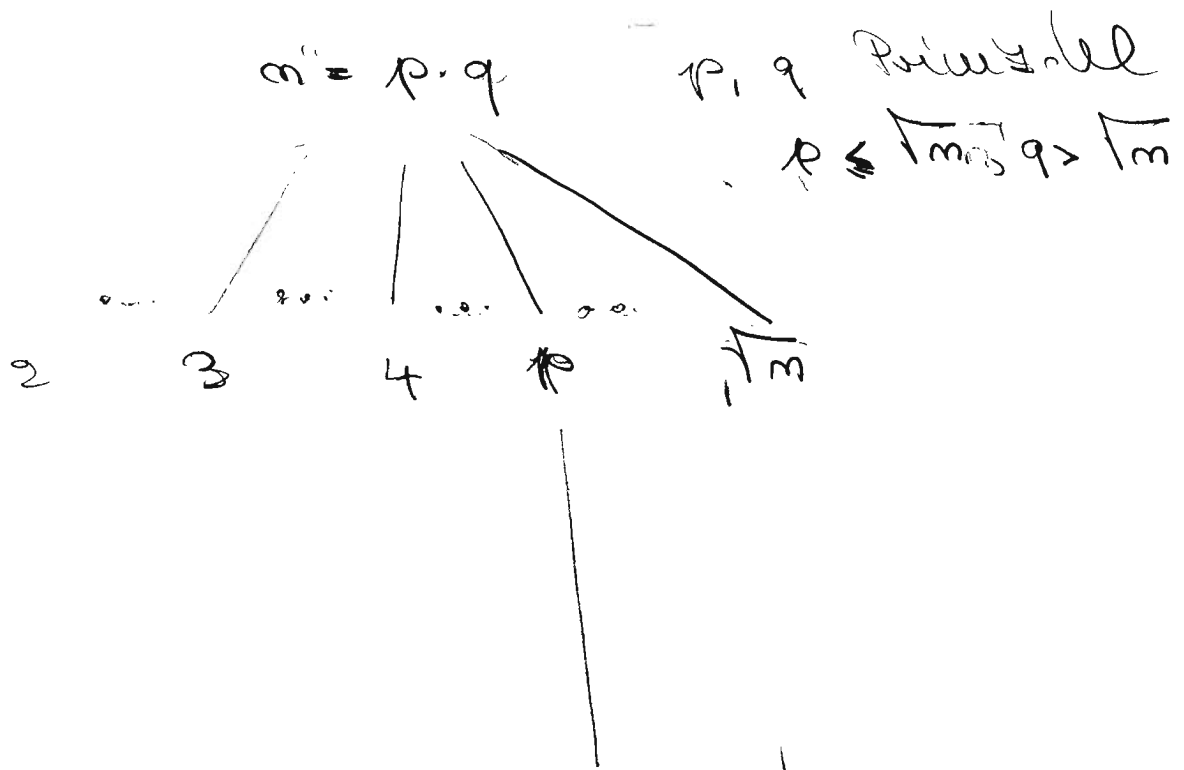 n = p · q p, q Primzahl
p ≤ √n, q > √n
... ... ... ...
2 3 4 p √n